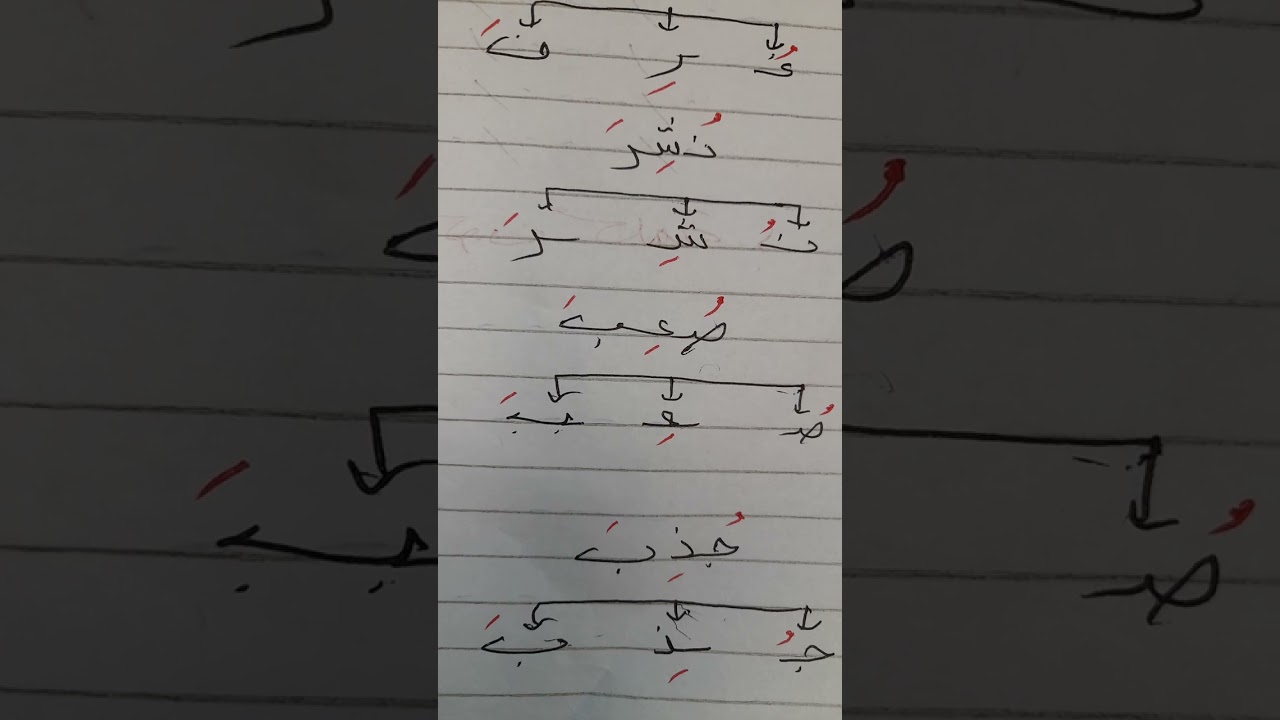 عُـ رِ فَ
نُشِرَ
نُـ شِـ رَ
صُعِبَ
صُـ ـعِـ ـبَ
جُذِبَ
جُـ ـذِ بَ